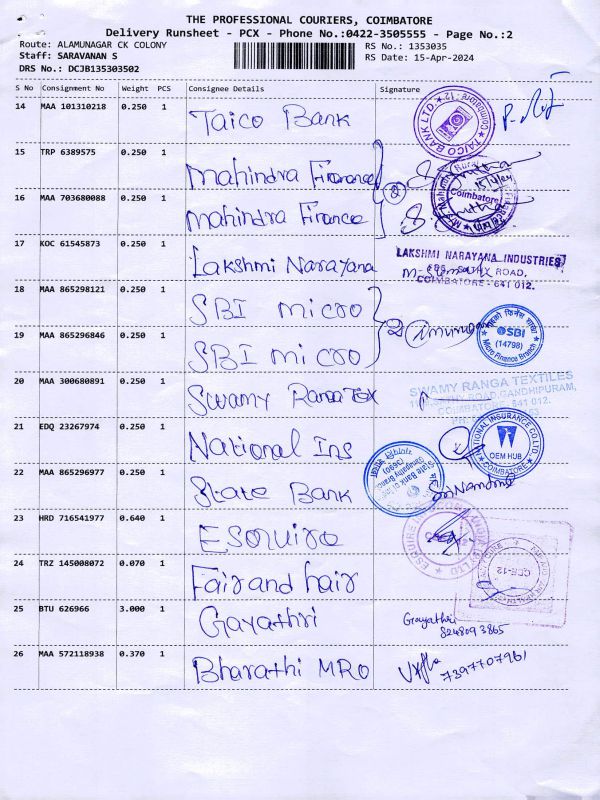 THE PROFESSIONAL COURIERS, COIMBATORE
Delivery Runsheet - PCX - Phone No.:0422-3505555 - Page No.:2
Route: ALAMUNAGAR CK COLONY
RS No.: 1353035
Staff: SARAVANAN S
RS Date: 15-Apr-2024
DRS No.: DCJB135303502
S No Consignment No Weight PCS Consignee Details Signature
14 MAA 101310218 0.250 1 Taico Bank
TAICO BANK LTD. Coimbatore - 12
15 TRP 6389575 0.250 1 Mahindra Finance
2
15/4/24
16 MAA 703680088 0.250 1 Mahindra Finance
Coimbatore
17 KOC 61545873 0.250 1 Lakshmi Narayana
LAKSHMI NARAYANA INDUSTRIES
ROAD,
COIMBATORE - 641 012.
18 MAA 865298121 0.250 1 SBI micro
2
SBI
(14798)
Micro Finance Branch
19 MAA 865296846 0.250 1 SBI micro
20 MAA 300680891 0.250 1 Swamy Ranga Tex
SWAMY RANGA TEXTILES
ROAD, GANDHIPURAM,
COIMBATORE - 641 012.
21 EDQ 23267974 0.250 1 National Ins
NATIONAL INSURANCE CO. LTD.
OEM HUB
COIMBATORE
22 MAA 865296977 0.250 1 State Bank
State Bank of India
23 HRD 716541977 0.640 1 Esquire
24 TRZ 145008072 0.070 1 Fair and hair
25 BTU 626966 3.000 1 Gayathri
Gayathri
8248093865
26 MAA 572118938 0.370 1 Bharathi MRO
7397707961